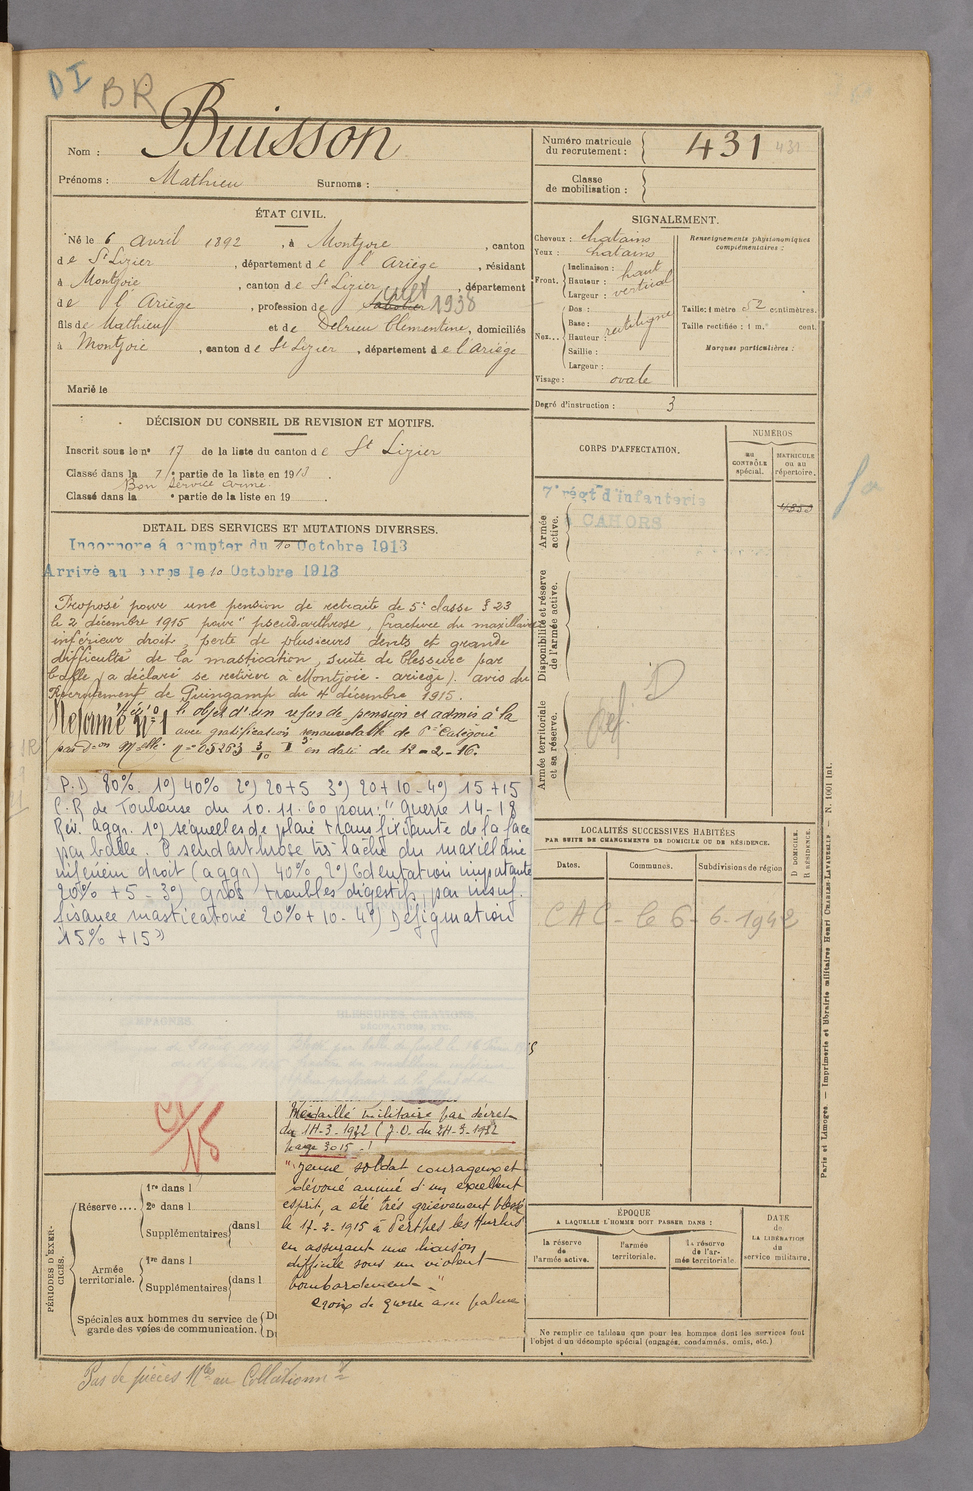 DI BR
Nom : Buisson
Prénoms : Mathieu Surnoms :
Numéro matricule du recrutement : 431 431
Classe de mobilisation :
ÉTAT CIVIL.
Né le 6 avril 1892, à Montjoie, canton
de St Lizier, département de l'Ariège, résidant
à Montjoie, canton de St Lizier, département
de l'Ariège, profession de cult 1938
fils de Mathieu et de Delrieu Clémentine, domiciliés
à Montjoie, canton de St Lizier, département de l'Ariège
Marié le
SIGNALEMENT.
Cheveux : chatains
Yeux : chatains
Front. Inclinaison :
Hauteur : haut
Largeur : vertical
Nez... Dos :
Base : rectiligne
Hauteur :
Saillie :
Largeur :
Visage : ovale
Renseignements physionomiques complémentaires :
Taille: 1 mètre 52 centimètres.
Taille rectifiée : 1 m. cent.
Marques particulières :
Degré d'instruction : 3
DÉCISION DU CONSEIL DE REVISION ET MOTIFS.
Inscrit sous le no 17 de la liste du canton de St Lizier
Classé dans la 1e partie de la liste en 1913.
Bon service armé.
Classé dans la e partie de la liste en 19 .
DETAIL DES SERVICES ET MUTATIONS DIVERSES.
Incorporé à compter du 10 Octobre 1913
Arrivé au corps le 10 Octobre 1913
Proposé pour une pension de retraite de 5e classe § 23
le 2 décembre 1915 pour "pseudarthrose, fracture du maxillaire
inférieur droit, perte de plusieurs dents et grande
difficulté de la mastication, suite de blessure par
balle, (a déclaré se retirer à Montjoie - ariège). avis du
Recrutement de Guingamp du 4 décembre 1915.
Réformé No 1 l'objet d'un refus de pension et admis à la
avec gratification renouvelable de 6e Catégorie
par Don Melle No 05263 en date du 12-2-16.
P.D 80% 1o) 40% 2o) 20+5 3o) 20+10 - 4o) 15+15
C.R de Toulouse du 10.11.60 pour: "Guerre 14-18
Rév. Aggr. 1o) séquelles de plaie transfixiante de la face
par balle. Pseudarthrose très lache du maxillaire
inférieur droit (aggr) 40% 2o) Edentation importante
20% +5 - 3o) gros troubles digestifs par insuf-
fisance masticatoire 20% +10 - 4o) Défiguration
15% +15")
CAMPAGNES.
BLESSURES, CITATIONS, DÉCORATIONS, ETC.
Médaillé militaire par décret
du 14-3-1922 (J.O. du 24-3-1922
page 3015 -)
"jeune soldat courageux et
dévoué animé d'un excellent
esprit, a été très grièvement blessé
le 17-2-1915 à Perthes les Hurlus
en assurant une liaison
difficile sous un violent
bombardement."
croix de guerre avec palme
PÉRIODES D'EXERCICES.
Réserve .... 1re dans l
2e dans l
Supplémentaires dans l
Armée territoriale. 1re dans l
Supplémentaires dans l
Spéciales aux hommes du service de garde des voies de communication.
CORPS D'AFFECTATION.
NUMÉROS
au CONTRÔLE spécial.
MATRICULE ou au répertoire.
Armée active.
7e régt d'infanterie
à CAHORS
Disponibilité et réserve de l'armée active.
Armée territoriale et sa réserve.
Réf. D
LOCALITÉS SUCCESSIVES HABITÉES
PAR SUITE DE CHANGEMENTS DE DOMICILE OU DE RÉSIDENCE.
Dates. Communes. Subdivisions de région
D DOMICILE.
R RÉSIDENCE.
CAC - le 6-6-1942
ÉPOQUE
A LAQUELLE L'HOMME DOIT PASSER DANS :
la réserve de l'armée active.
l'armée territoriale.
la réserve de l'armée territoriale.
DATE de LA LIBÉRATION du service militaire.
Ne remplir ce tableau que pour les hommes dont les services font
l'objet d'un décompte spécial (engagés, condamnés, omis, etc.)
Paris et Limoges. — Imprimerie et librairie militaires Henri CHARLES-LAVAUZELLE. — N. 1001 Int.
Pas de pièces Mles au Collationnt